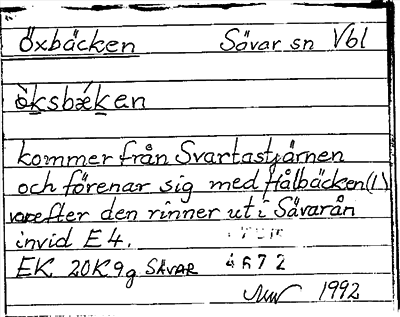 Öxbäcken Sävar sn Vbl
ö̀ksbǽken
kommer från Svartastjärnen
och förenar sig med Hålbäcken (1.)
varefter den rinner ut i Sävarån
invid E4.
EK 20K9g SÄVAR 4672
1992